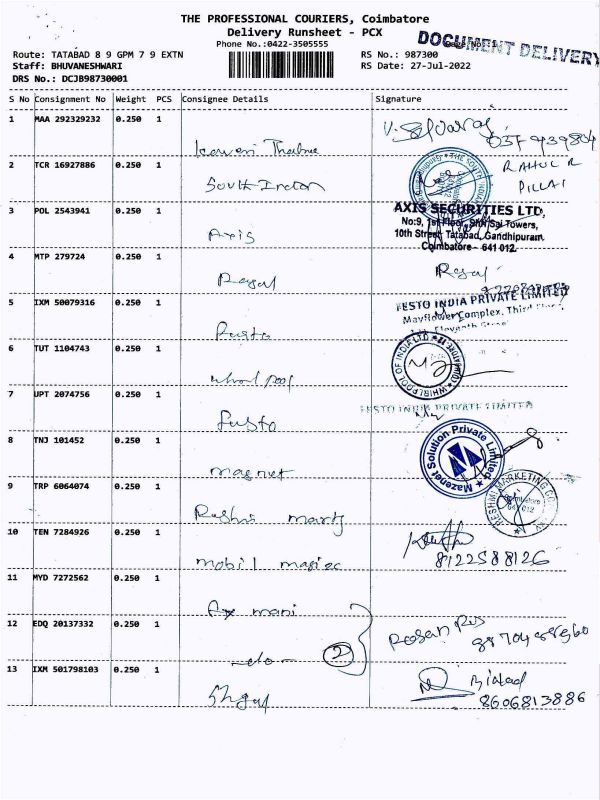 THE PROFESSIONAL COURIERS, Coimbatore
Delivery Runsheet - PCX
Phone No.:0422-3505555
DOCUMENT DELIVERY
Route: TATABAD 8 9 GPM 7 9 EXTN
RS No.: 987300
Staff: BHUVANESHWARI
RS Date: 27-Jul-2022
DRS No.: DCJB98730001
S No Consignment No Weight PCS Consignee Details Signature
1 MAA 292329232 0.250 1
2 TCR 16927886 0.250 1 RAHUL R
PILLAI
South Indian
3 POL 2543941 0.250 1 AXIS SECURITIES LTD,
No:9, 1st Floor, Shri Sai Towers,
10th Street, Tatabad, Gandhipuram,
Coimbatore - 641 012.
Axis
4 MTP 279724 0.250 1
Royal
5 IXM 50079316 0.250 1 FESTO INDIA PRIVATE LIMITED
Mayflower Complex, Third Floor,
Festo
6 TUT 1104743 0.250 1 WHIRLPOOL OF INDIA LTD
whirlpool
7 UPT 2074756 0.250 1 FESTO INDIA PRIVATE LIMITED
Festo
8 TNJ 101452 0.250 1 Mazenet Solution Private Limited
magnet
9 TRP 6064074 0.250 1 RESHMI MARKETING CO
Coimbatore
641 012
10 TEN 7284926 0.250 1 8122588126
mobil magic
11 MYD 7272562 0.250 1
12 EDQ 20137332 0.250 1
2
-do-
13 IXM 501798103 0.250 1
8606813886